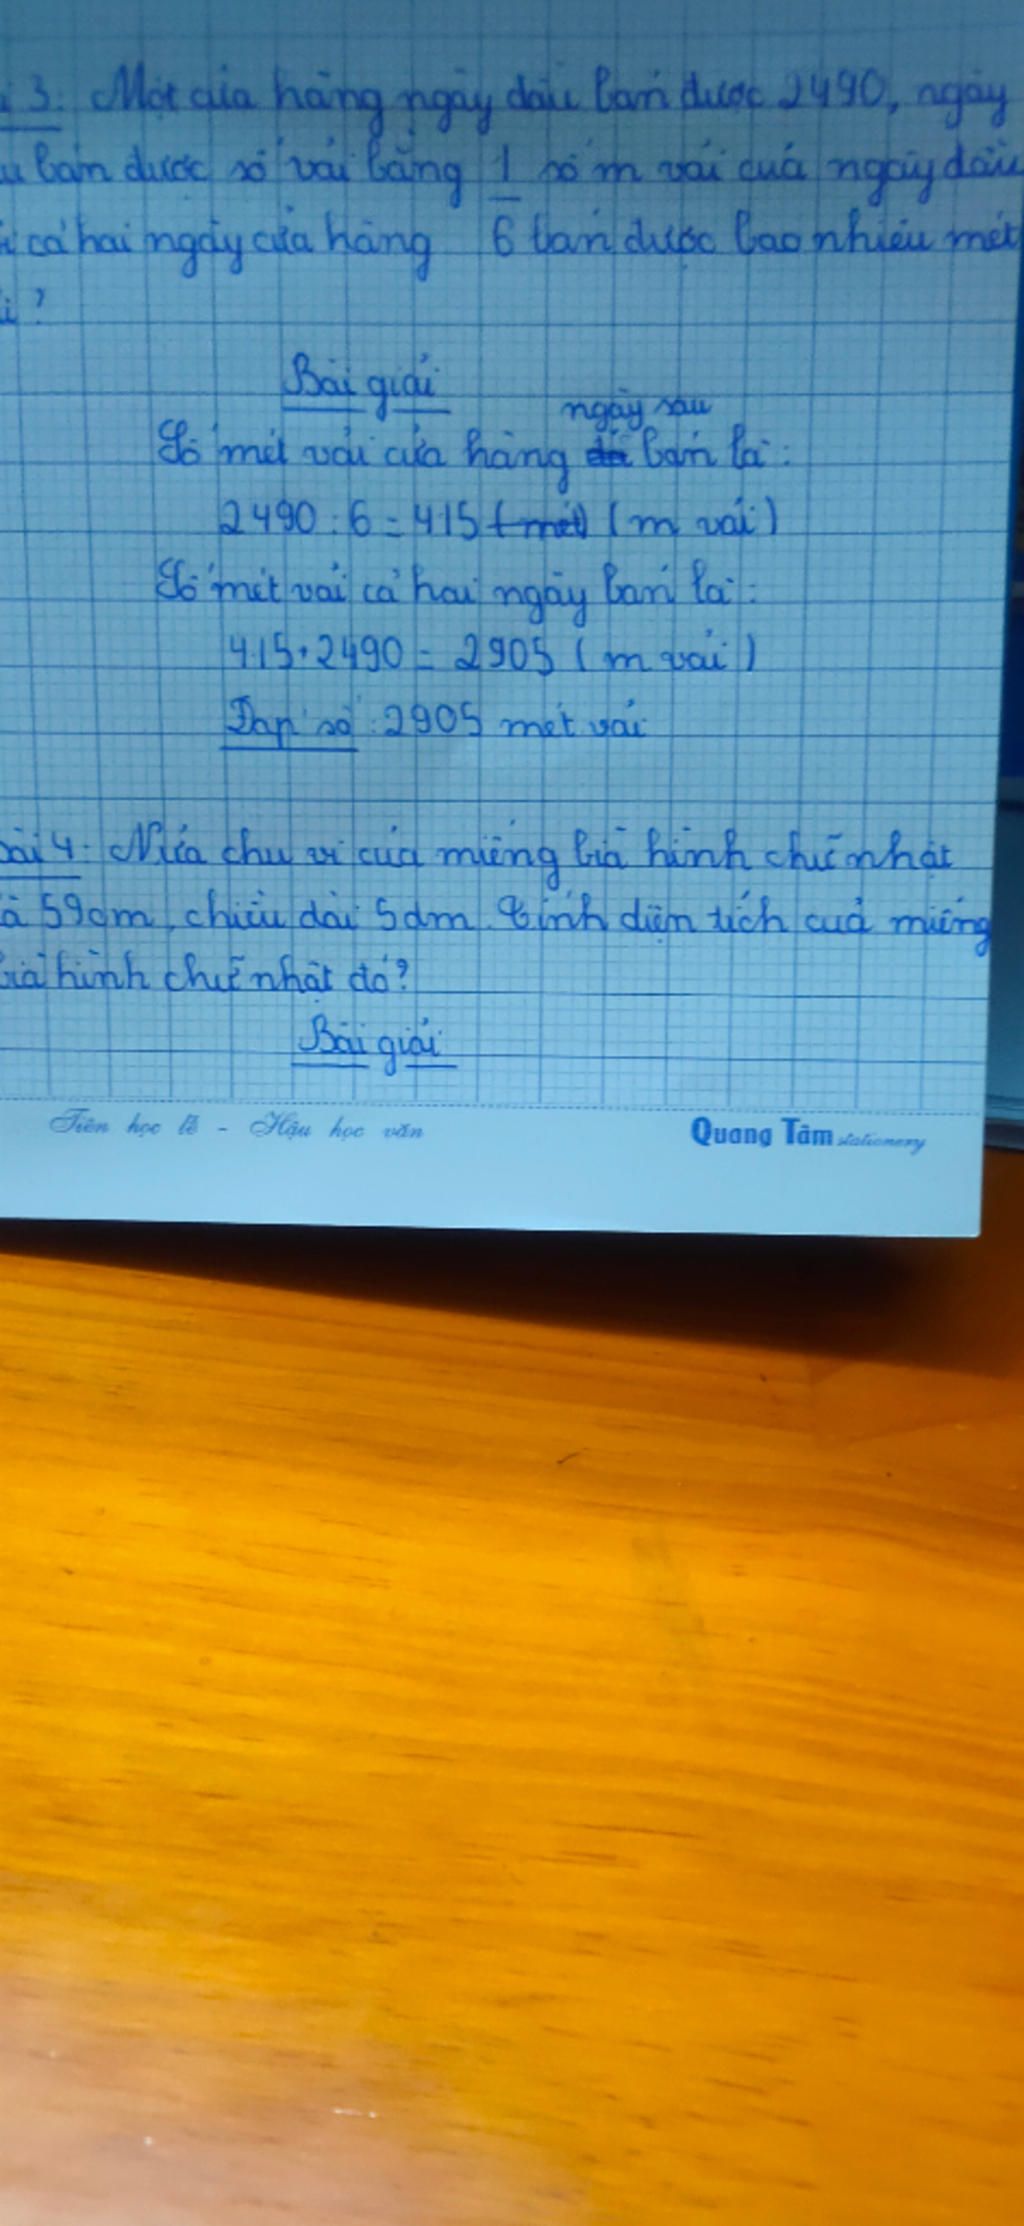 3. Một cửa hàng ngày đầu bán được 2490, ngày
bán được số vải bằng 1 số m vải của ngày đầu
cả hai ngày cửa hàng 6 bán được bao nhiêu mét
?
Bài giải
ngày sau
Số mét vải cửa hàng bán là:
2490 : 6 = 415 (mét) (m vải)
Số mét vải cả hai ngày bán là:
415 + 2490 = 2905 (m vải)
Đáp số: 2905 mét vải
bài 4. Nửa chu vi của miếng bìa hình chữ nhật
59cm, chiều dài 5dm. Tính diện tích của miếng
bìa hình chữ nhật đó?
Bài giải
Tiên học lễ - Hậu học văn
Quang Tâm stationery